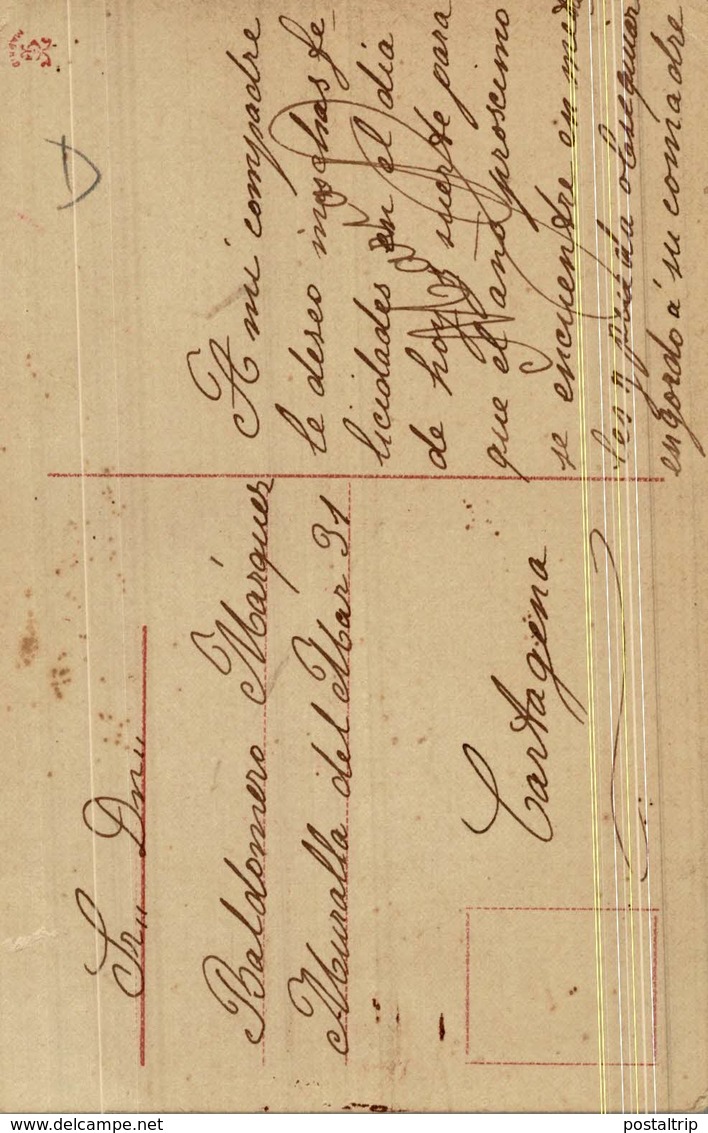 A mi compadre
le deseo muchas fe-
licidades en el dia
de hoy y suerte para
que el ano proscimo
se encuentre en mé
les y pueda obsequiar
en gordo á su comadre
Sr,, Dn,,
Baldomero Márquez
Muralla del Mar 31
Cartagena
MADRID
www.delcampe.net
postaltrip